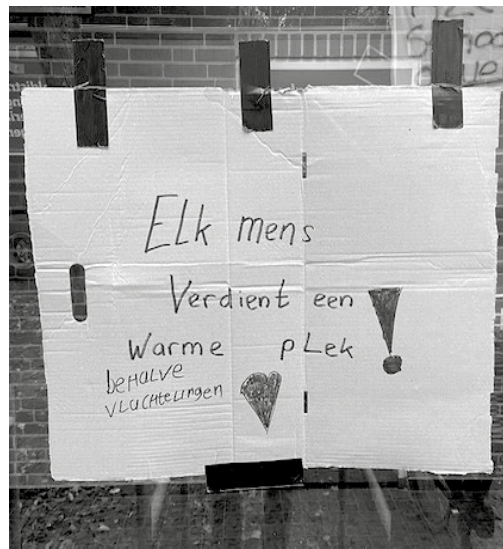 Elk mens
Verdient een !
Warme pLek
beHALVE
VLUCHTELINGEN